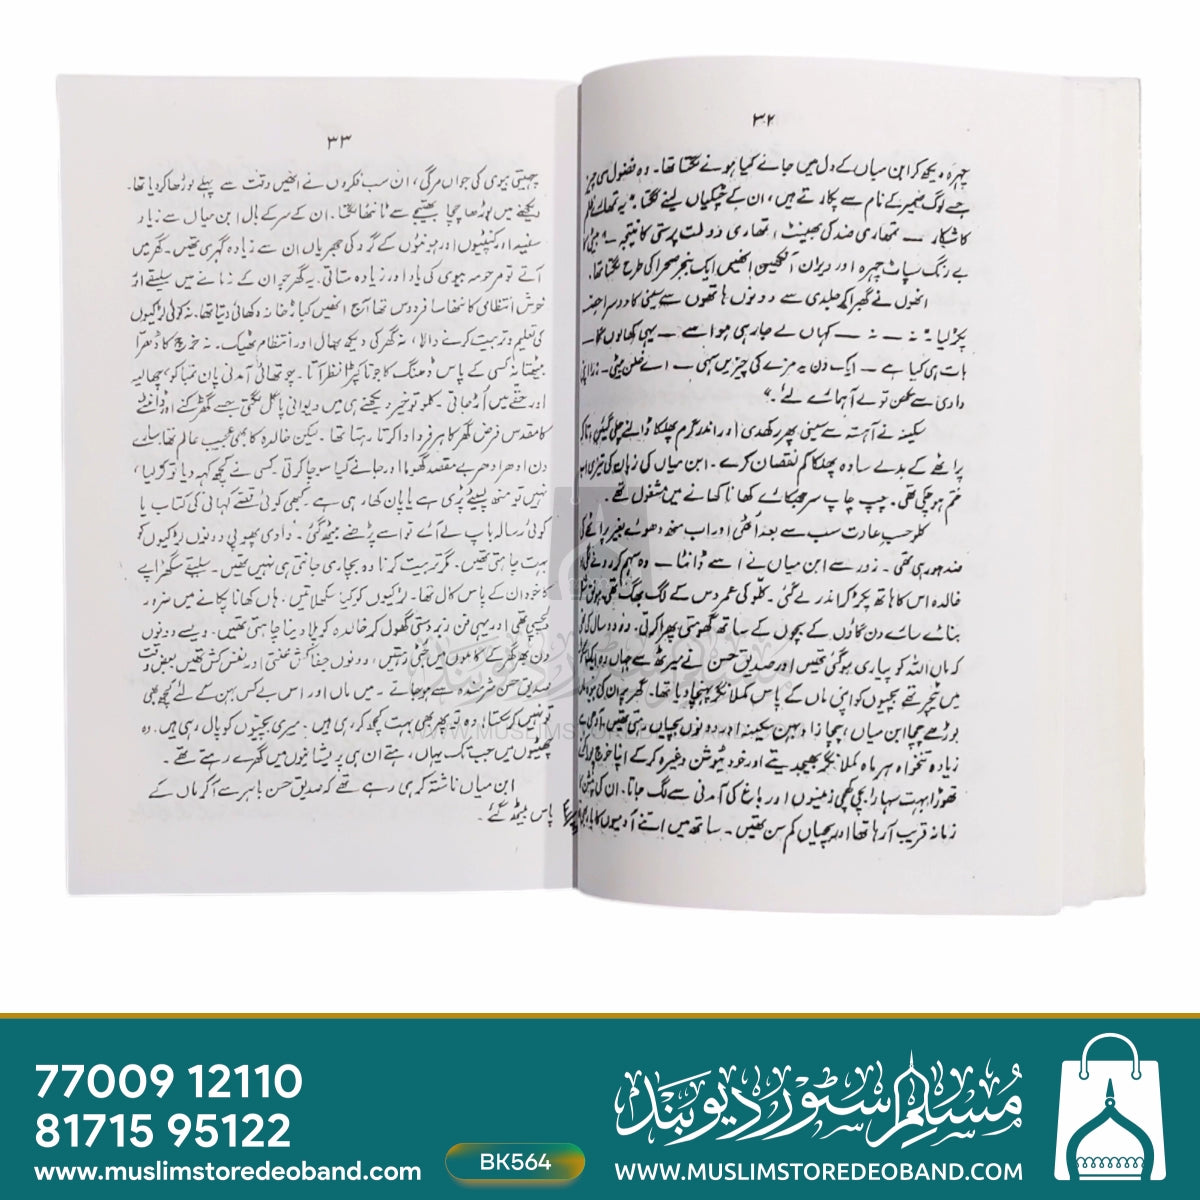 ۳۲
چہرہ دیکھ کر ابن میاں کے دل میں جانے کیا ہونے لگتا تھا۔ وہ فضول سی چیز
جسے لوگ ضمیر کے نام سے پکارتے ہیں، ان کے چٹکیاں لینے لگتا۔ یہ تمھارے ظلم
کا شکار — تمھاری ضد کی بھینٹ، تمھاری دولت پرستی کا نتیجہ۔ بیٹی کا
بے رنگ سپاٹ چہرہ اور ویران آنکھیں انھیں ایک بنجر صحرا کی طرح لگتا تھا۔
انھوں نے گھبرا کر جلدی سے دونوں ہاتھوں سے سینی کا دوسرا حصہ
پکڑ لیا۔ نہ — نہ — کہاں لے جا رہی ہو اسے — یہی کھالوں گا —
بات ہی کیا ہے — ایک دن یہ مزے کی چیزیں سہی — اے خلن بیٹی۔ ذرا اپنی
دادی سے مکھن تو لے آ ہمارے لئے۔"
سکینہ نے آہستہ سے سینی پھر رکھدی اور اندر گرم پھلکا ڈالنے چلی گئیں، تاکہ
پراٹھے کے بدلے سادہ پھلکا کم نقصان کرے۔ ابن میاں کی زبان کی تیزی اب
ختم ہو چکی تھی۔ چپ چاپ سر جھکائے کھانا کھانے میں مشغول تھے۔
کلو حسب عادت سب سے بعد اُٹھی اور اب منھ دھوئے بغیر پراٹھے کی
ضد ہو رہی تھی۔ زور سے ابن میاں نے اسے ڈانٹا — وہ سہم کر رونے لگی
خالدہ اس کا ہاتھ پکڑ کر اندر لے گئی۔ کلّو کی عمر دس کے لگ بھگ تھی۔ ہونق شکل
بنائے سارے دن گاؤں کے بچوں کے ساتھ گھومتی پھرا کرتی۔ وہ دو سال کی تھی
کہ ماں اللہ کو پیاری ہوگئی تھیں اور صدیق حسن نے میرٹھ سے جہاں وہ ایک
میں ٹیچر تھے بچیوں کو اپنی ماں کے پاس کملا نگر پہنچا دیا تھا۔ گھر پر ان کی بیوہ ماں
بوڑھے چچا ابن میاں، چچازاد بہن سکینہ اور دونوں بچیاں رہتی تھیں۔ آدھی سے
زیادہ تنخواہ ہر ماہ کملا نگر بھیج دیتے اور خود ٹیوشن وغیرہ کر کے اپنا خرچ چلاتے
تھوڑا بہت سہارا بچی کھچی زمینوں اور باغ کی آمدنی سے لگ جاتا۔ ان کی پنشن کا
زمانہ قریب آرہا تھا اور بچیاں کم سن تھیں۔ ساتھ میں اتنے آدمیوں کا بار،
۳۳
چہیتی بیوی کی جواں مرگی، ان سب فکروں نے انھیں وقت سے پہلے بوڑھا کر دیا تھا۔
دیکھنے میں بوڑھا چچا بھتیجے سے ٹانٹھا لگتا۔ ان کے سر کے بال ابن میاں سے زیادہ
سفید اور کنپٹیوں اور ہونٹوں کے گرد کی جھریاں ان سے زیادہ گہری تھیں۔ گھر میں
آتے تو مرحومہ بیوی کی یاد اور زیادہ ستاتی۔ یہ گھر جو ان کے زمانے میں سلیقے اور
خوش انتظامی کا ننھا سا فردوس تھا آج انھیں کباڑ خانہ دکھائی دیتا تھا۔ نہ کوئی لڑکیوں
کی تعلیم و تربیت کرنے والا، نہ گھر کی دیکھ بھال اور انتظام ٹھیک۔ نہ خرچ کا ڈھرا
بیٹھتا نہ کسی کے پاس ڈھنگ کا جوتا کپڑا نظر آتا۔ چوتھائی آمدنی پان تمباکو، چھالیہ
اور حقے میں اُڑ جاتی۔ کلو تو خیر دیکھنے ہی میں دیوانی پاگل لگتی جسے گھڑکنے اور ڈانٹنے
کا مقدس فرض گھر کا ہر فرد ادا کرتا رہتا تھا۔ لیکن خالدہ کا بھی عجیب عالم تھا۔ سارے
دن ادھر ادھر بے مقصد گھومنا اور جانے کیا سوچا کرتی۔ کسی نے کچھ کہہ دیا تو کر لیا،
نہیں تو منھ لپیٹے پڑی ہے یا پان کھا رہی ہے۔ کبھی کوئی قصے کہانی کی کتاب یا
کوئی رسالہ باپ لے آئے تو اسے پڑھنے بیٹھ گئی۔ دادی پھوپی دونوں لڑکیوں کو
بہت چاہتی تھیں۔ مگر تربیت کرنا وہ بچاری جانتی ہی نہیں تھیں۔ سلیقے سگھڑاپے
کا خود ان کے پاس کال تھا۔ لڑکیوں کو کیا سکھلاتیں، ہاں کھانا پکانے میں ضرور
دلچسپی تھی اور یہی فن زبردستی گھول کر خالدہ کو پلا دینا چاہتی تھیں۔ ویسے دونوں
دن بھر گھر کے کاموں میں جٹی رہتیں، دونوں جفاکش محنتی اور نفس کش تھیں۔ بعض وقت
صدیق حسن شرمندہ سے ہو جاتے۔ میں ماں اور اس بے کس بہن کے لئے کچھ بھی
تو نہیں کر سکتا، وہ تو پھر بھی بہت کچھ کر رہی ہیں۔ میری بچیوں کو پال رہی ہیں۔ وہ
چھٹیوں میں جب تک یہاں رہتے ان ہی پریشانیوں میں گھرے رہتے تھے۔
ابن میاں ناشتہ کر ہی رہے تھے کہ صدیق حسن باہر سے آکر ماں کے
پاس بیٹھ گئے۔
مسلم سٹور دیوبند
WWW.MUSLIMSTOREDEOBAND.COM
77009 12110
81715 95122
www.muslimstoredeoband.com
BK564
مسلم سٹور دیوبند
WWW.MUSLIMSTOREDEOBAND.COM